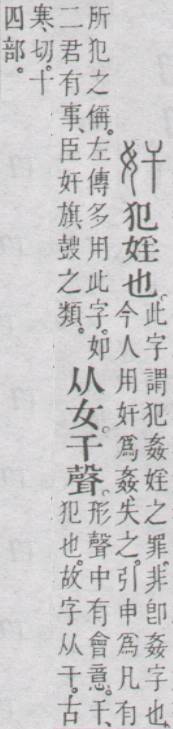 奸犯婬也。
此字謂犯姦婬之罪。非卽姦字也。
今人用奸爲姦、失之。引申爲凡有
所犯之稱。左傳多用此字。如
二君有事、臣奸旗鼓之類。
从女。干聲。
形聲中有會意。干、
犯也。故字从干。古
寒切。十
四部。